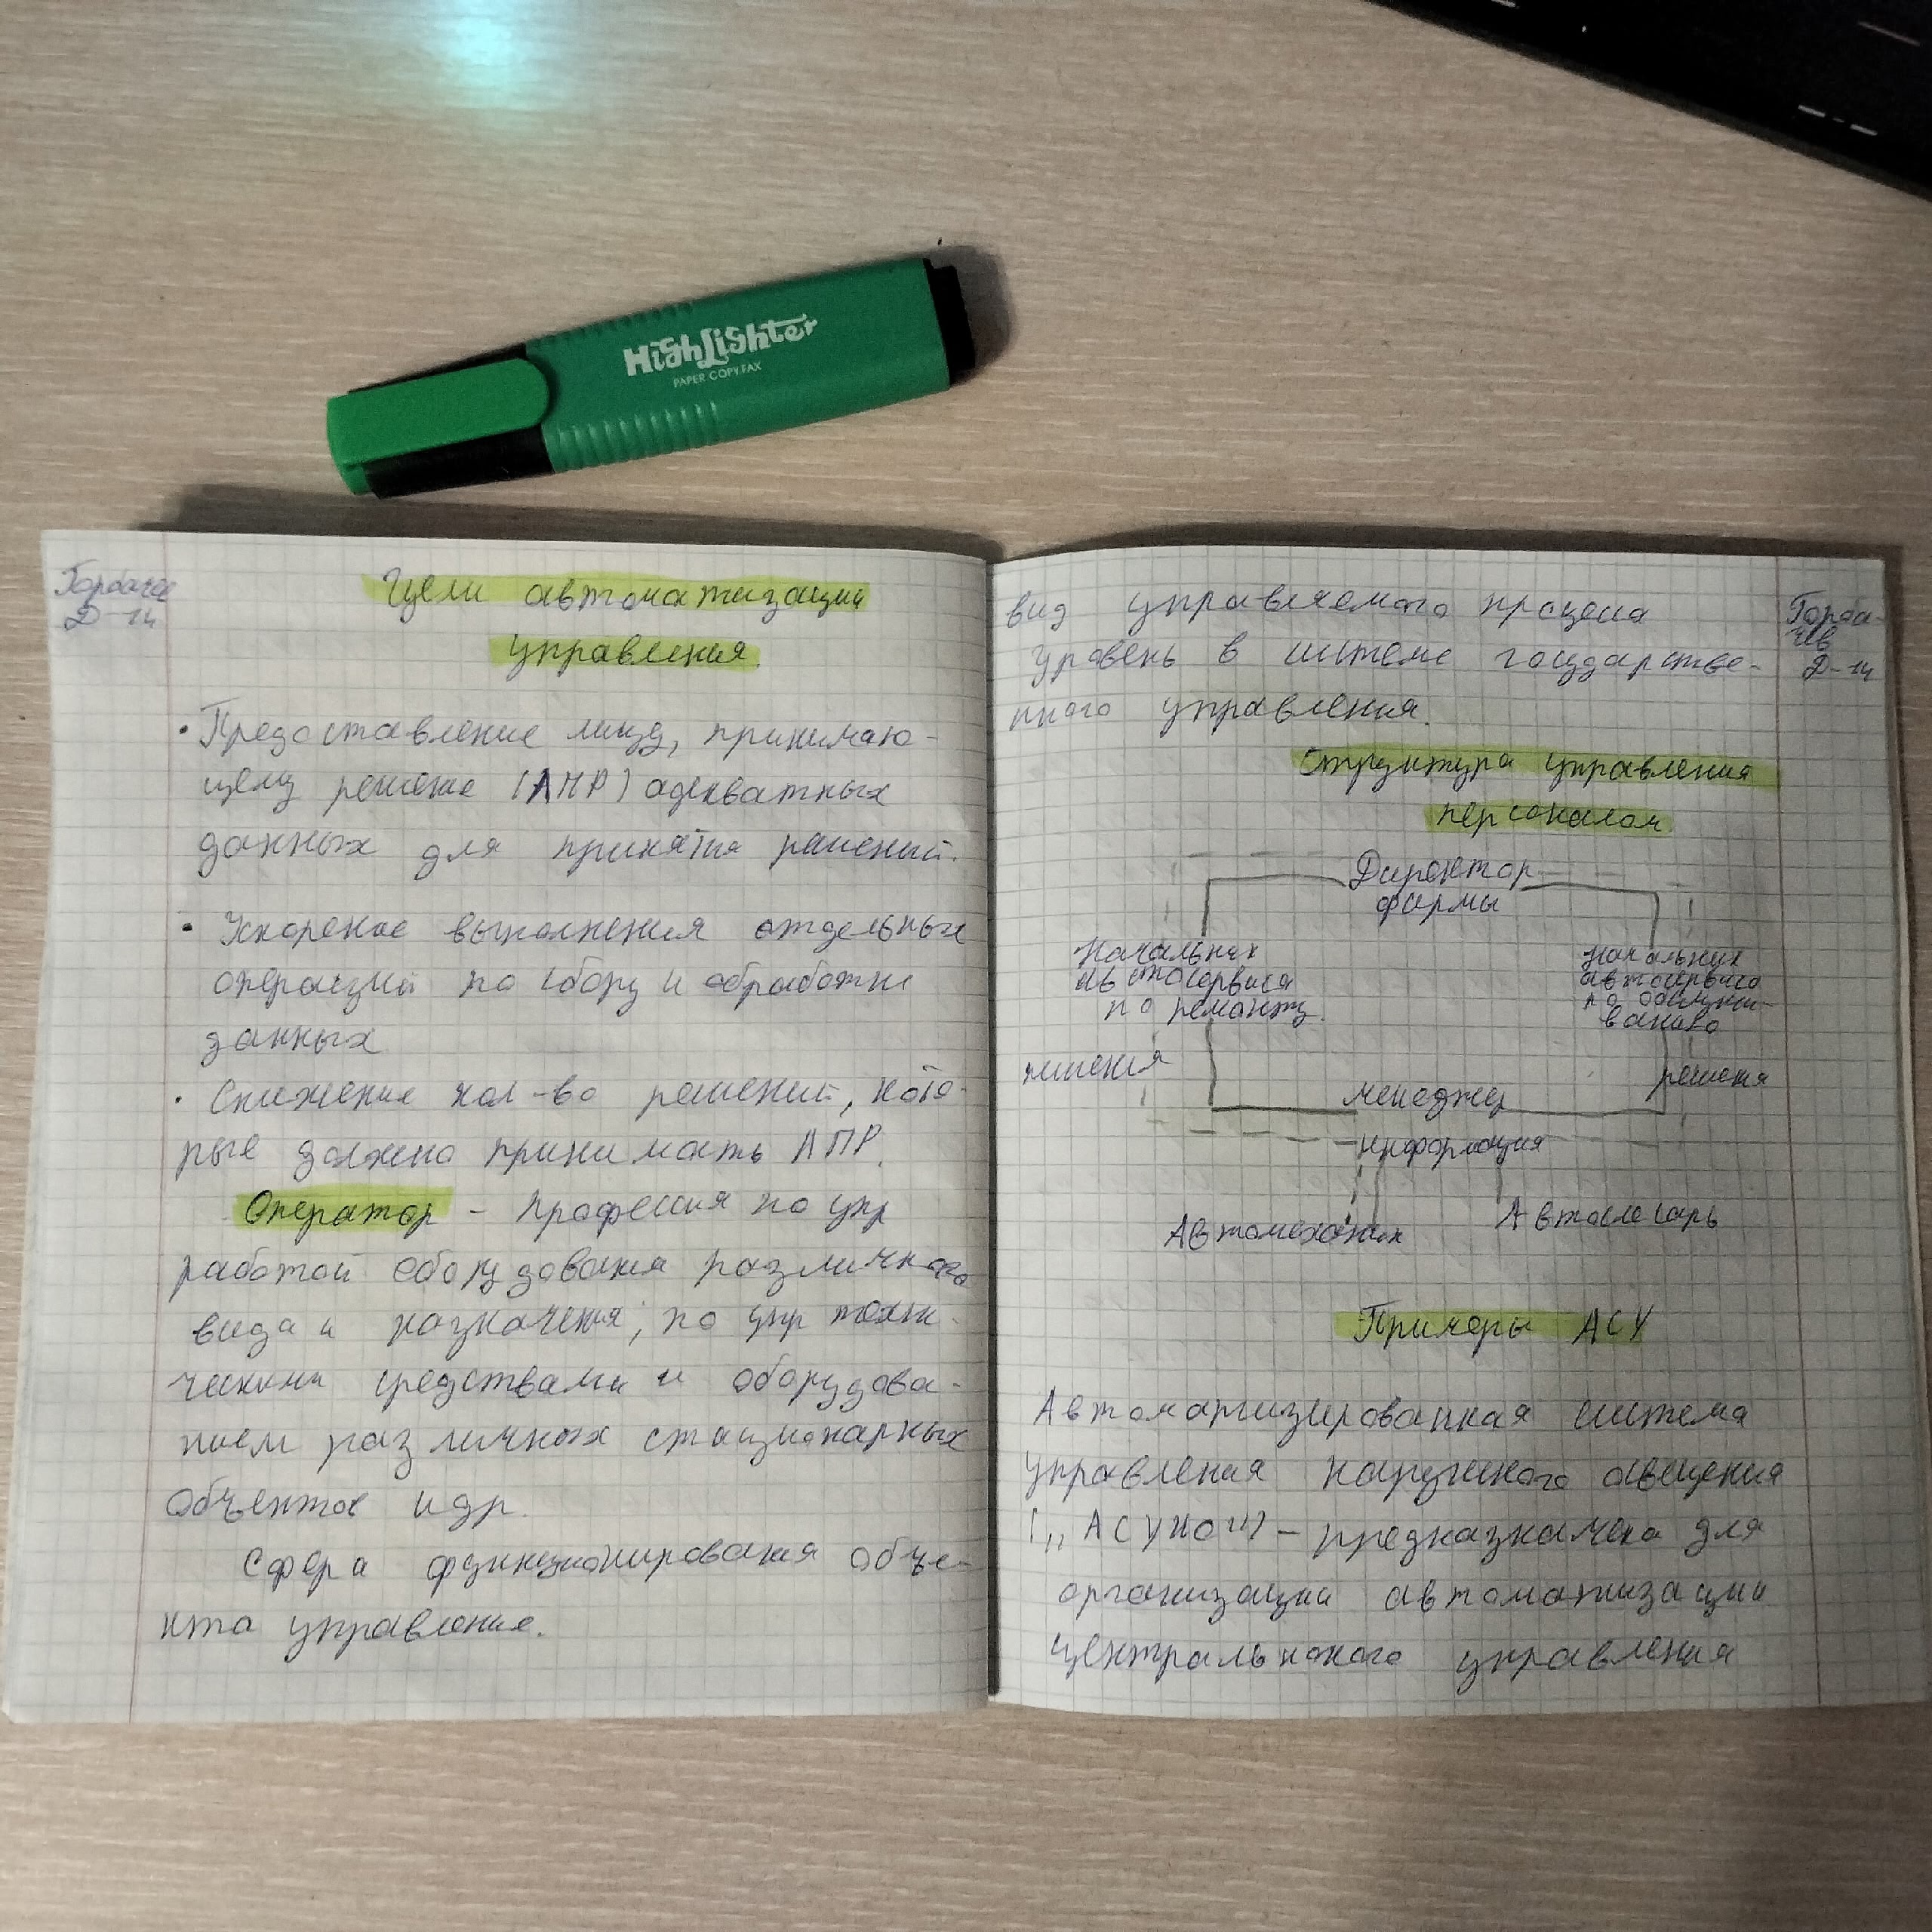 HighLighter
PAPER COPY.FAX
Горбачев
Д-14
Цели автоматизации
управления.
• Предоставление лицу, принимаю-
щему решение (ЛПР) адекватных
данных для принятия решений.
• Ускорение выполнения отдельных
операций по сбору и обработке
данных
• Снижение кол-во решений, кото-
рые должно принимать ЛПР.
Оператор - профессия по упр
работой оборудования различного
вида и назначения, по упр техни-
ческими средствами и оборудова-
нием различных стационарных
объектов и др.
Сфера функционирования объе-
кта управление.
вид управляемого процесса
уровень в системе государстве-
нного управления.
Горба-
чев
Д-14
Структура управления
персоналом.
Директор
фирмы
Начальник
автосервиса
по ремонту.
Начальник
автосервиса
по обслужи-
ванию
решения
решения
менеджер
информация
Автомеханик
Автослесарь
Примеры АСУ
Автоматизированная система
управления наружного освещения
(„АСУНО") - предназначена для
организации автоматизации
центрального управления